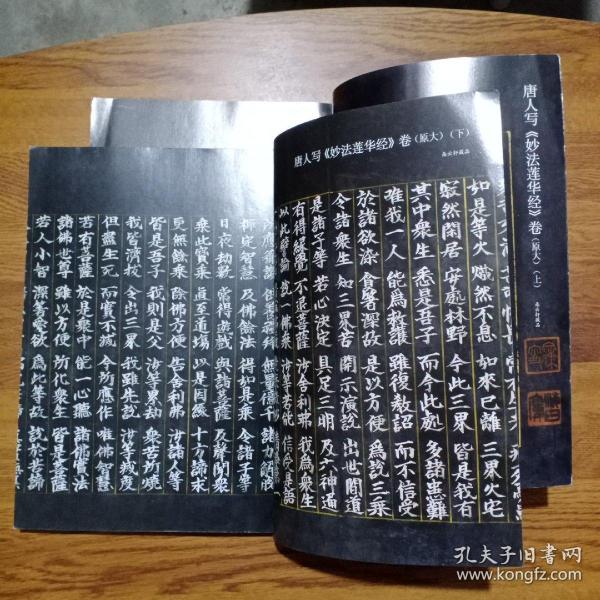 唐人写《妙法莲华经》卷(原大)(上)
唐人写《妙法莲华经》卷(原大)(下)
如是等火 熾然不息 如來已離 三界火宅
寂然閑居 安處林野 今此三界 皆是我有
其中衆生 悉是吾子 而今此處 多諸患難
唯我一人 能為救護 雖復教詔 而不信受
於諸欲染 貪著深故 為說三乘
令諸衆生 知三界苦 開示演說 出世間道
是諸子等 若心決定 具足三明 及六神通
有得緣覺 不退菩薩 汝舍利弗 我為衆生
以此譬喻 說一佛乘 汝等若能 信受是語
無數億千 諸力解脫
禪定智慧 及佛餘法 得如是乘 令諸子等
日夜劫數 常得遊戲 與諸菩薩 及聲聞衆
乘此寶乘 直至道場 以是因緣 十方諦求
更無餘乘 除佛方便 告舍利弗 汝諸人等
皆是吾子 我則是父 汝等累劫 衆苦所燒
我皆濟拔 令出三界 我雖先說 汝等滅度
但盡生死 而實不滅 今所應作 唯佛智慧
若有菩薩 於是衆中 能一心聽 諸佛實法
諸佛世尊 雖以方便 所化衆生 皆是菩薩
若人小智 深著愛欲 為此等故 說於苦諦
孔夫子旧书网
www.kongfz.com